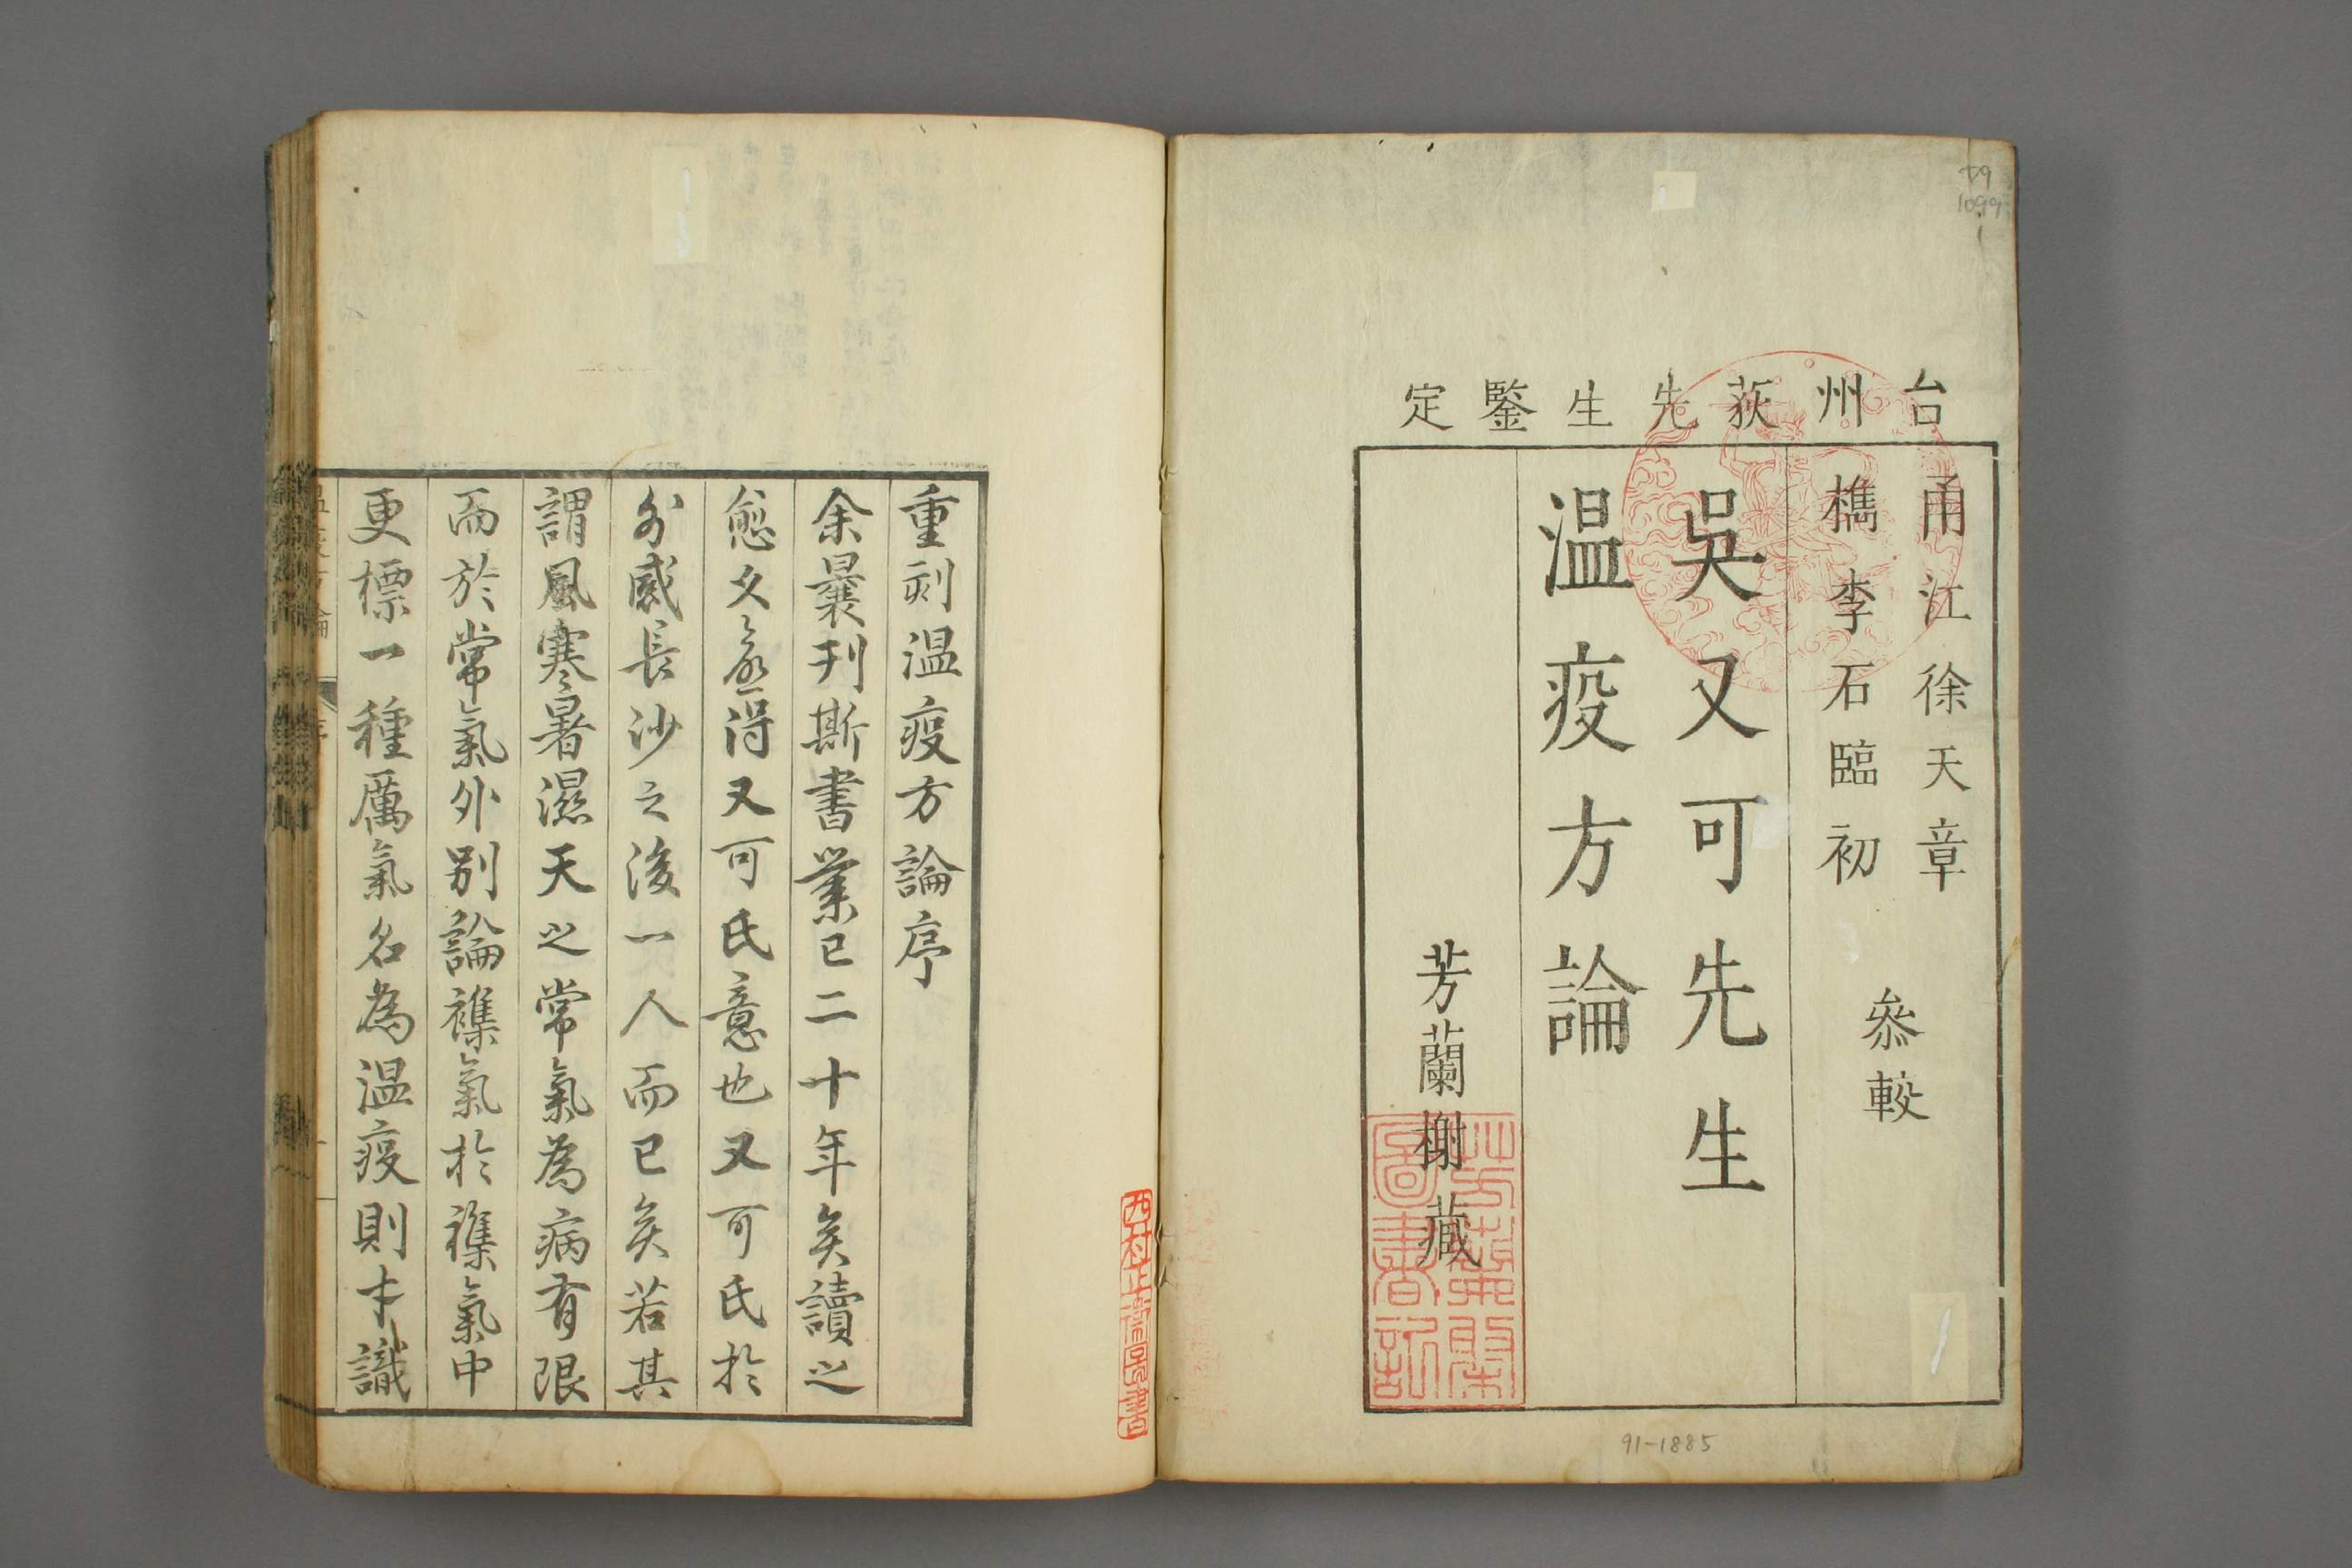 台州荻先生鑒定
甬江徐天章
檇李石臨初
叅較
吳又可先生
温疫方論
芳蘭榭藏
79
1099
1
91-1885
重刻温疫方論序
余曩刊斯書業已二十年矣讀之
愈久愈得又可氏意也又可氏於
外感長沙之後一人而已矣若其
謂風寒暑濕天之常氣為病有限
而於常氣外別論襍氣於襍氣中
更標一種厲氣名為温疫則才識